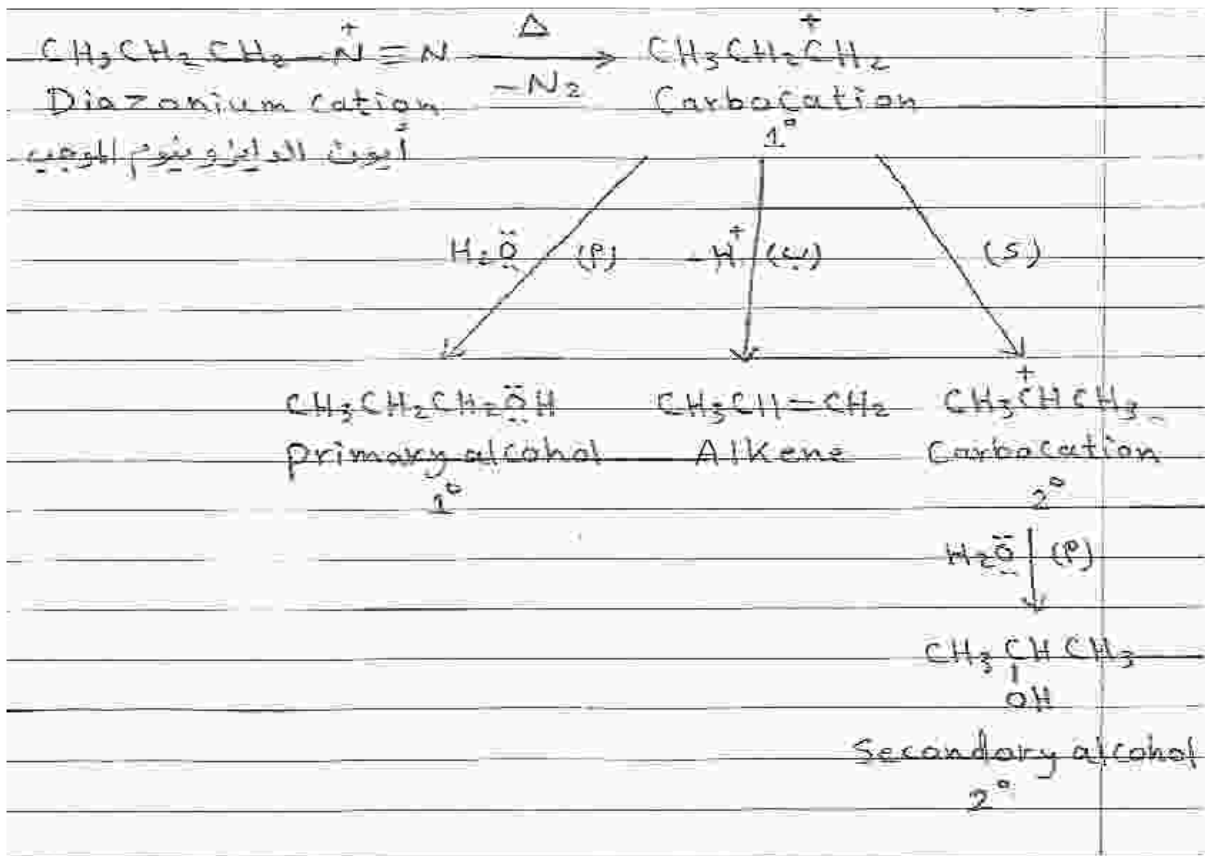 CH₃CH₂CH₂—N⁺≡N  Δ / −N₂ →  CH₃CH₂C⁺H₂
Diazonium cation  Carbocation
أيون الدايزونيوم الموجب  1°
H₂Ö (أ)  −H⁺ (ب)  (د)
CH₃CH₂CH₂ÖH  CH₃CH=CH₂  CH₃C⁺HCH₃
primary alcohol  Alkene  Carbocation
1°  2°
H₂Ö (أ)
CH₃CHCH₃
OH
Secondary alcohol
2°